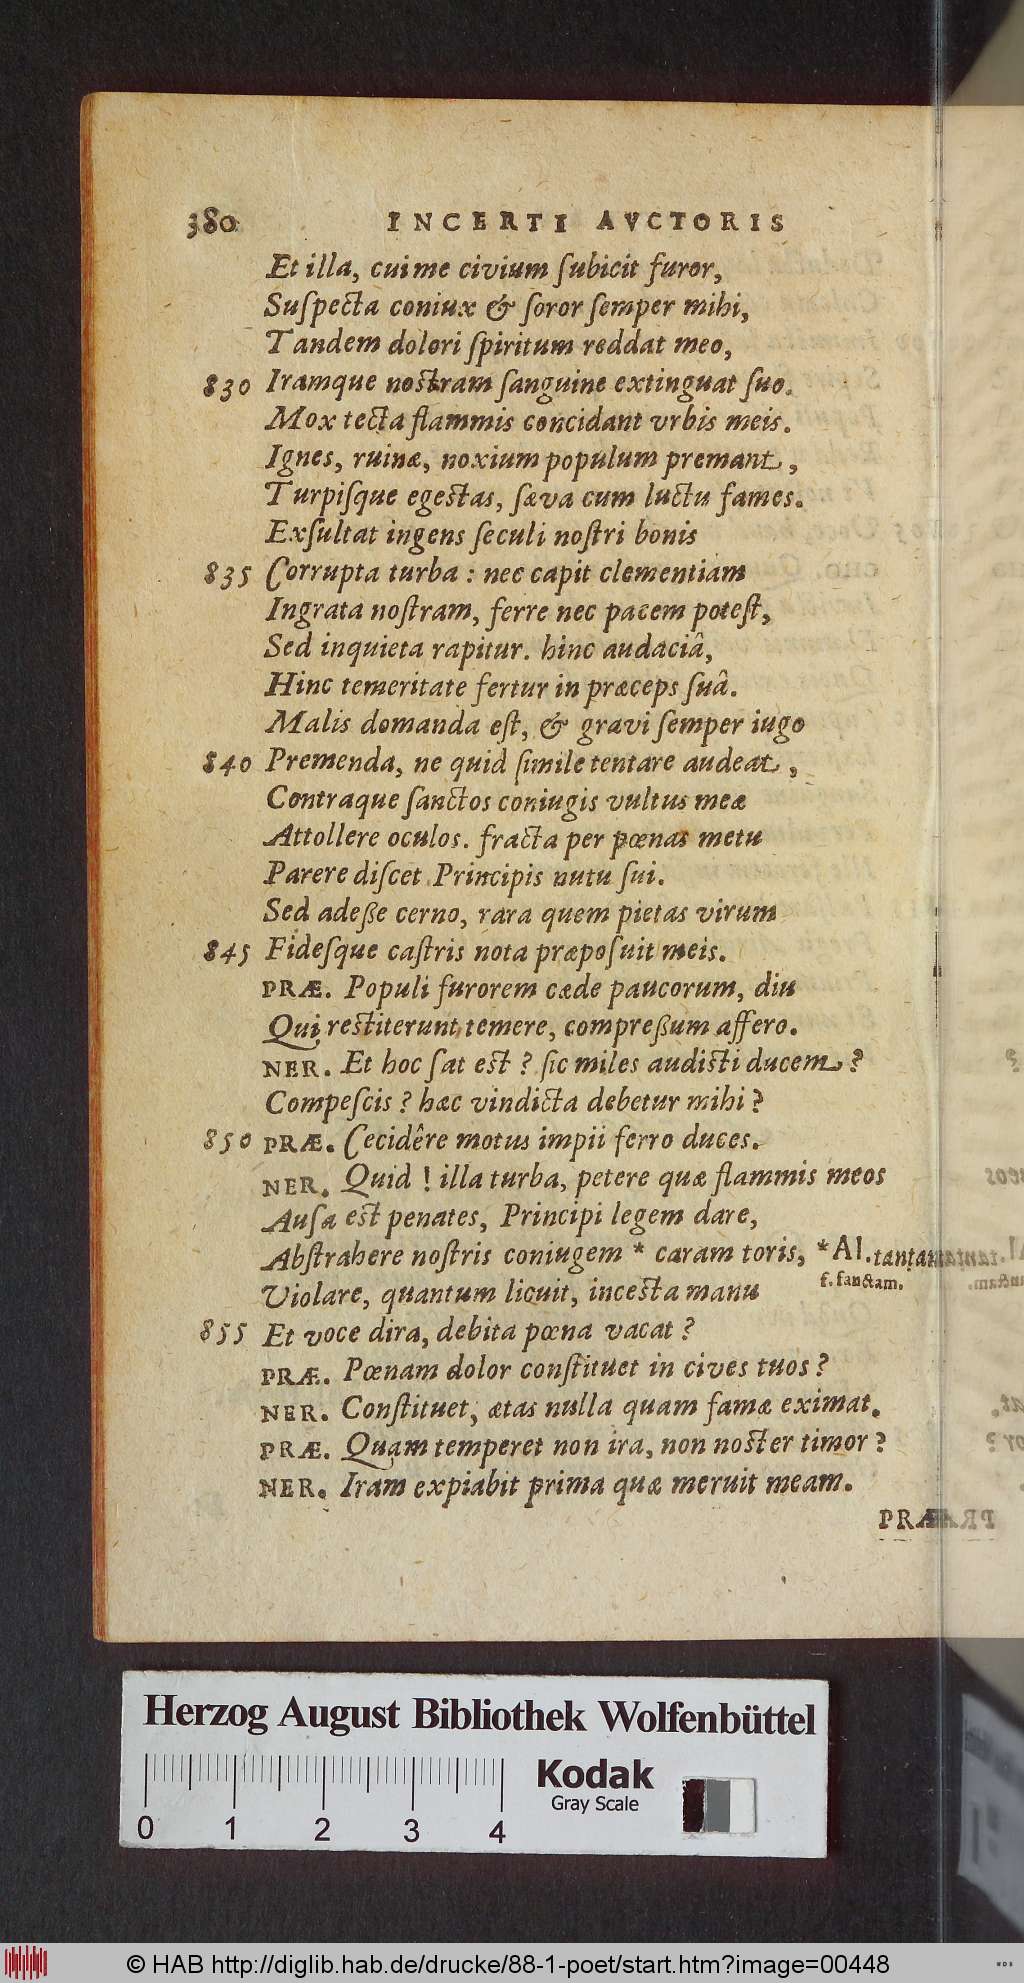 380 INCERTI AVCTORIS
Et illa, cui me civium ſubicit furor,
Suſpecta coniux & ſoror ſemper mihi,
Tandem dolori ſpiritum reddat meo,
830 Iramque nostram ſanguine extinguat ſuo.
Mox tecta flammis concidant vrbis meis.
Ignes, ruinæ, noxium populum premant,
Turpiſque egestas, ſæva cum luctu fames.
Exſultat ingens ſeculi noſtri bonis
835 Corrupta turba : nec capit clementiam
Ingrata noſtram, ferre nec pacem poteſt,
Sed inquieta rapitur. hinc audaciâ,
Hinc temeritate fertur in præceps ſuâ.
Malis domanda eſt, & gravi ſemper iugo
840 Premenda, ne quid ſimile tentare audeat,
Contraque ſanctos coniugis vultus meæ
Attollere oculos. fracta per pœnas metu
Parere diſcet Principis nutu ſui.
Sed adeße cerno, rara quem pietas virum
845 Fideſque caſtris nota præpoſuit meis.
PRÆ. Populi furorem cæde paucorum, diu
Qui restiterunt temere, compreßum affero.
NER. Et hoc ſat est ? ſic miles audisti ducem ?
Compeſcis ? hæc vindicta debetur mihi ?
850 PRÆ. Cecidêre motus impii ferro duces.
NER. Quid ! illa turba, petere quæ flammis meos
Auſa est penates, Principi legem dare,
Abſtrahere noſtris coniugem * caram toris, *Al. tantam
f. ſanctam.
Violare, quantum licuit, incesta manu
855 Et voce dira, debita pœna vacat ?
PRÆ. Pœnam dolor conſtituet in cives tuos ?
NER. Conſtituet, ætas nulla quam famæ eximat.
PRÆ. Quam temperet non ira, non noster timor ?
NER. Iram expiabit prima quæ meruit meam.
PRÆ
Herzog August Bibliothek Wolfenbüttel
Kodak
Gray Scale
0 1 2 3 4
© HAB http://diglib.hab.de/drucke/88-1-poet/start.htm?image=00448